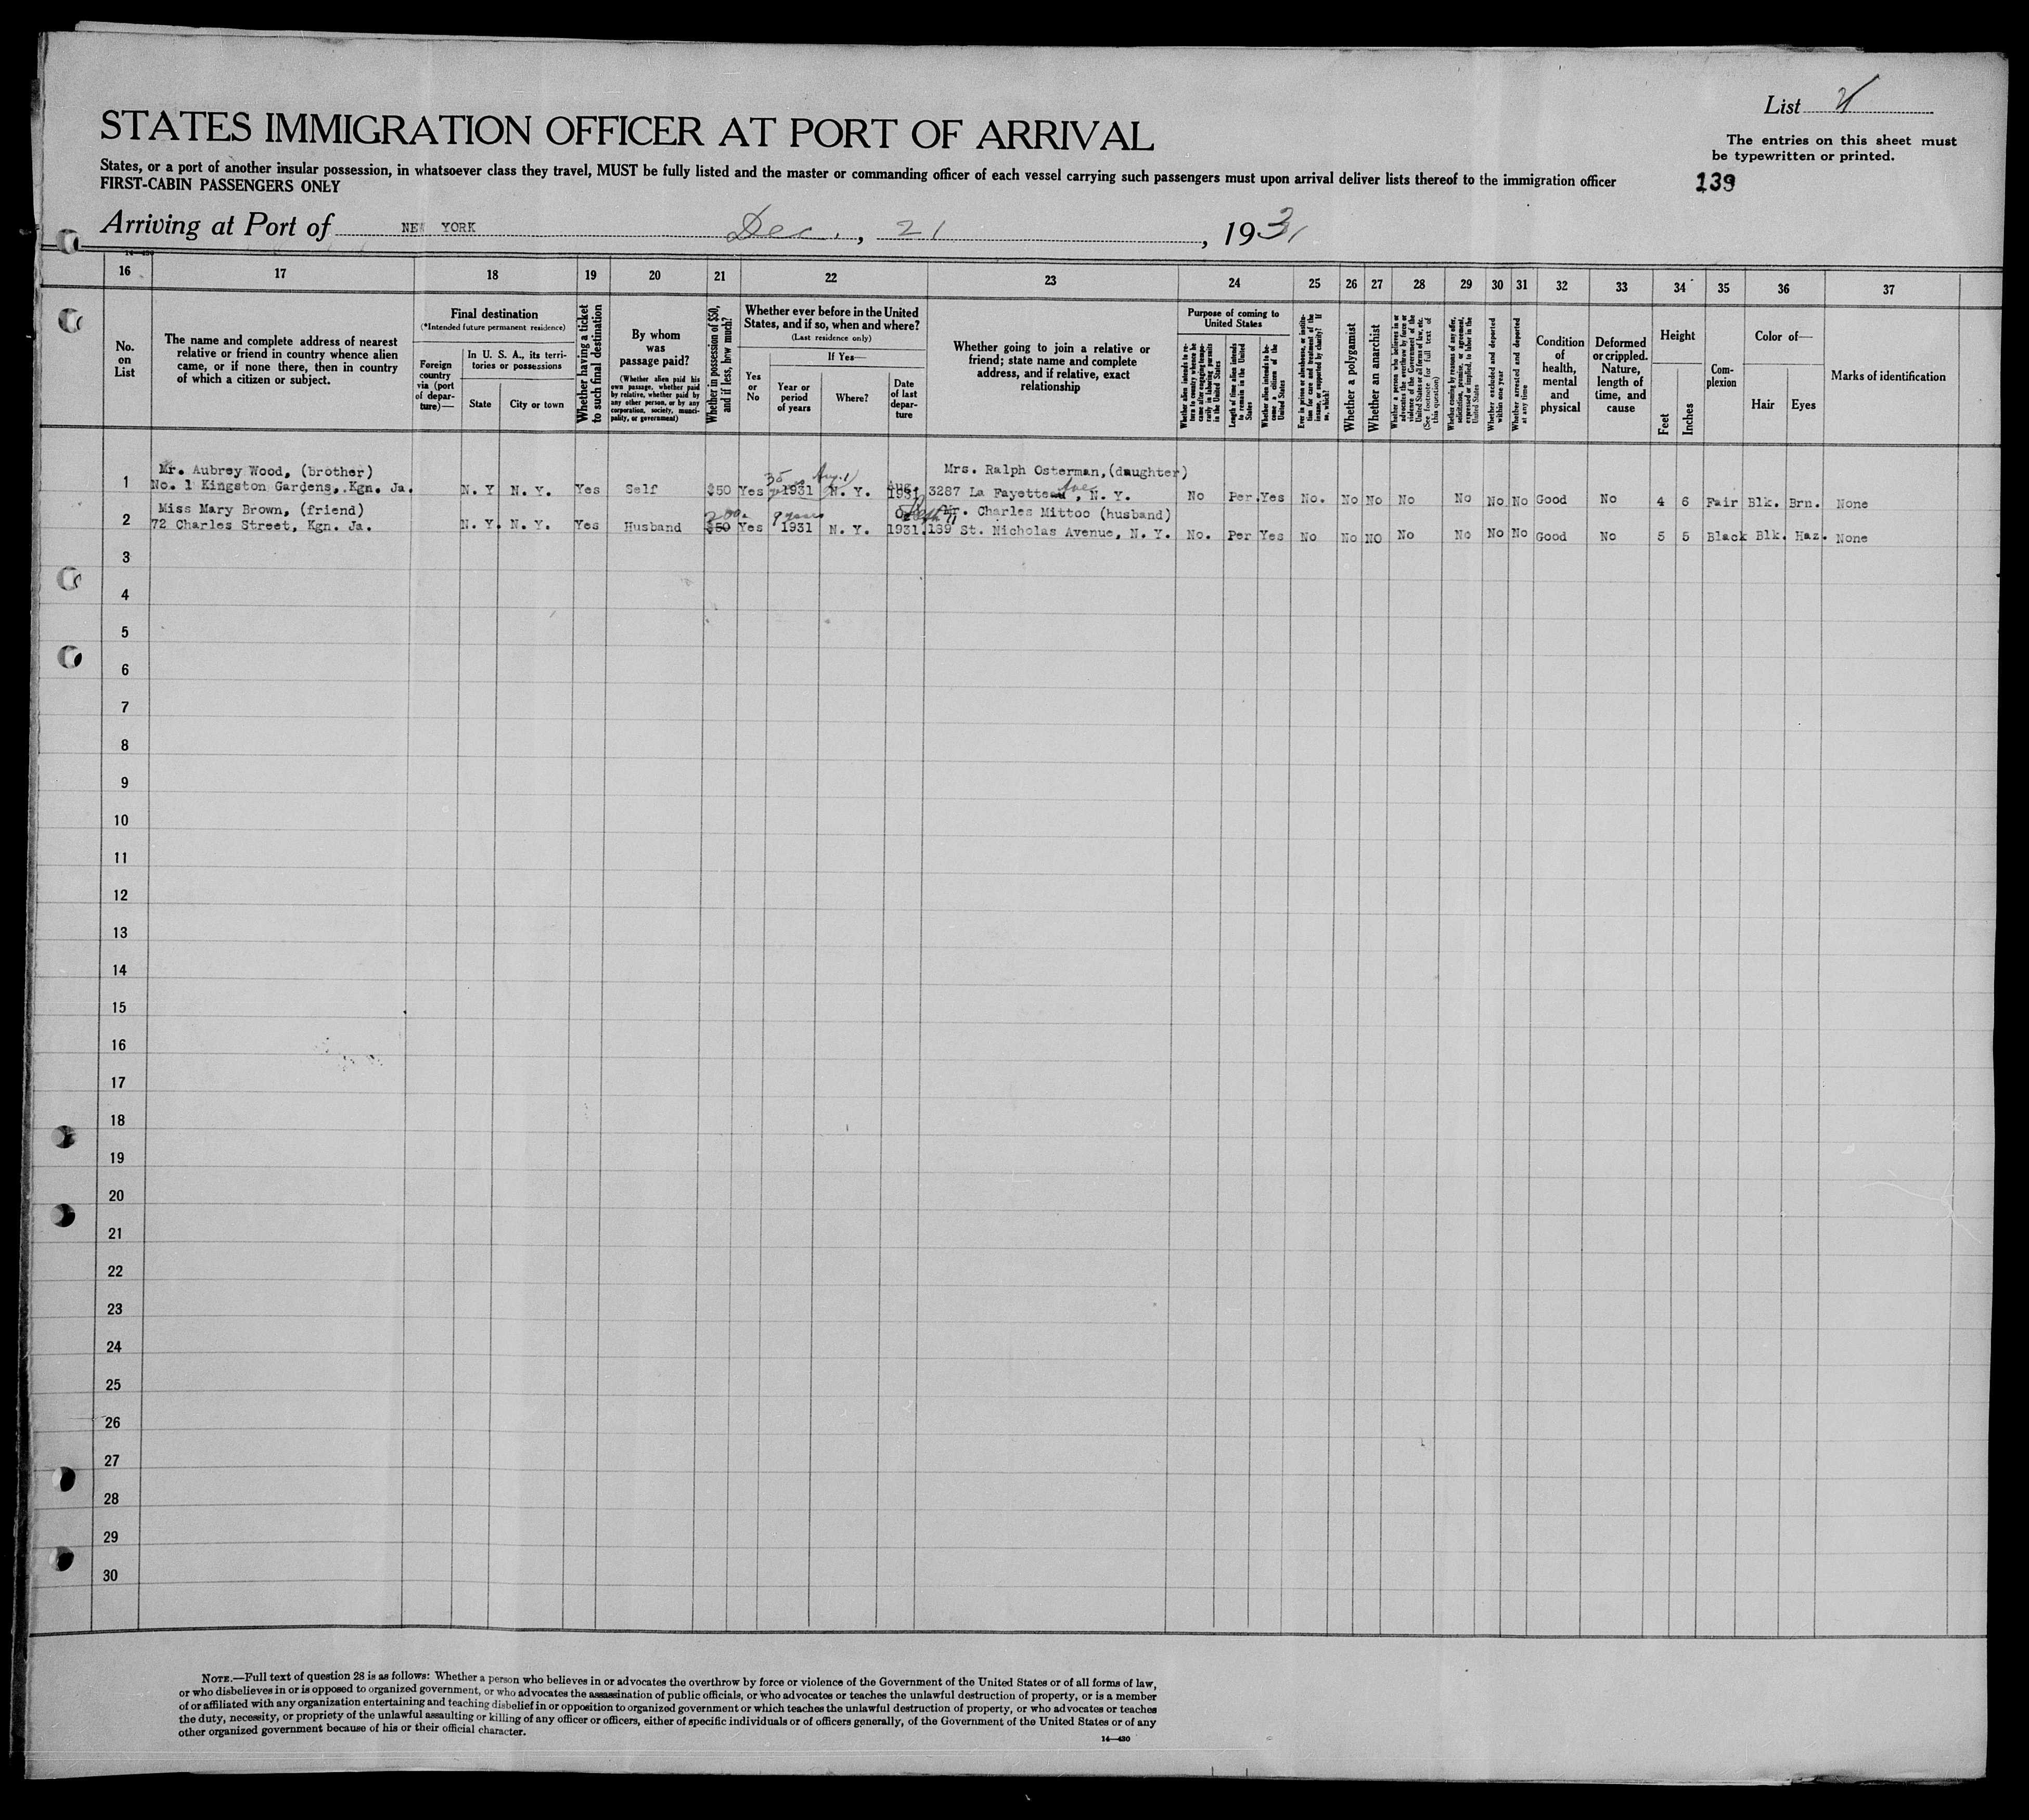 List
STATES IMMIGRATION OFFICER AT PORT OF ARRIVAL
The entries on this sheet must
be typewritten or printed.
States, or a port of another insular possession, in whatsoever class they travel, MUST be fully listed and the master or commanding officer of each vessel carrying such passengers must upon arrival deliver lists thereof to the immigration officer
FIRST-CABIN PASSENGERS ONLY
139
Arriving at Port of NEW YORK Dec., 21, 1931
14—430
16 17 18 19 20 21 22 23 24 25 26 27 28 29 30 31 32 33 34 35 36 37
No. on List
The name and complete address of nearest relative or friend in country whence alien came, or if none there, then in country of which a citizen or subject.
Final destination
(*Intended future permanent residence)
Foreign country via (port of departure)—
In U. S. A., its territories or possessions
State
City or town
Whether having a ticket to such final destination
By whom was passage paid?
(Whether alien paid his own passage, whether paid by relative, whether paid by any other person, or by any corporation, society, municipality, or government)
Whether in possession of $50, and if less, how much?
Whether ever before in the United States, and if so, when and where?
(Last residence only)
Yes or No
If Yes—
Year or period of years
Where?
Date of last departure
Whether going to join a relative or friend; state name and complete address, and if relative, exact relationship
Purpose of coming to United States
Whether alien intends to return to country whence he came after engaging temporarily in laboring pursuits in the United States
Length of time alien intends to remain in the United States
Whether alien intends to become a citizen of the United States
Ever in prison or almshouse, or institution for care and treatment of the insane, or supported by charity? If so, which?
Whether a polygamist
Whether an anarchist
Whether a person who believes in or advocates the overthrow by force or violence of the Government of the United States or all forms of law, etc. (See footnote for full text of this question)
Whether coming by reasons of any offer, solicitation, promise, or agreement, expressed or implied, to labor in the United States
Whether excluded and deported within one year
Whether arrested and deported at any time
Condition of health, mental and physical
Deformed or crippled. Nature, length of time, and cause
Height
Feet
Inches
Complexion
Color of—
Hair
Eyes
Marks of identification
35 Aug. 1
Mr. Aubrey Wood, (brother) Mrs. Ralph Osterman, (daughter)
1 No. 1 Kingston Gardens, Kgn. Ja. N. Y N. Y. Yes Self $50 Yes 1931 N. Y. Aug. 1931 3287 La Fayette Ave, N. Y. No Per. Yes No. No No No No No No Good No 4 6 Fair Blk. Brn. None
Miss Mary Brown, (friend) 200. 9 years Mr. Charles Mittoo (husband)
2 72 Charles Street, Kgn. Ja. N. Y. N. Y. Yes Husband $50 Yes 1931 N. Y. 1931. 189 St. Nicholas Avenue, N. Y. No. Per Yes No No NO No No No No Good No 5 5 Black Blk. Haz. None
3
4
5
6
7
8
9
10
11
12
13
14
15
16
17
18
19
20
21
22
23
24
25
26
27
28
29
30
NOTE.—Full text of question 28 is as follows: Whether a person who believes in or advocates the overthrow by force or violence of the Government of the United States or of all forms of law,
or who disbelieves in or is opposed to organized government, or who advocates the assassination of public officials, or who advocates or teaches the unlawful destruction of property, or is a member
of or affiliated with any organization entertaining and teaching disbelief in or opposition to organized government or which teaches the unlawful destruction of property, or who advocates or teaches
the duty, necessity, or propriety of the unlawful assaulting or killing of any officer or officers, either of specific individuals or of officers generally, of the Government of the United States or of any
other organized government because of his or their official character.
14—430